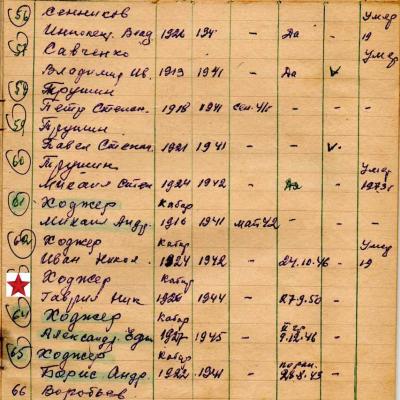 56 Сенников Умер
Инокен. Влад 1926 194 - Да - 19
57 Савченко Умер
Владимир Ив. 1919 1941 - Да v
58 Трушин
Петр Степан. 1918 1941 - - -
59 Трушин
Павел Степан. 1921 1941 - - v.
60 Трушин Умер
Михаил Степ 1924 1942 - Да 1973г
61 Ходжер Кабар
Михаил Андр. 1916 1941 май 42 - -
62 Ходжер Кабар Умер
Иван Никол. 1924 1942 - 24.10.46 - 19
Ходжер Кабар
Гаврил Ник 1926 1944 - 27.9.50 -
64 Ходжер Кабар
Александр. 1927 1945 - 9.12.46 -
65 Ходжер Кабар
Борис Андр. 1922 1941 -
66 Воробьев